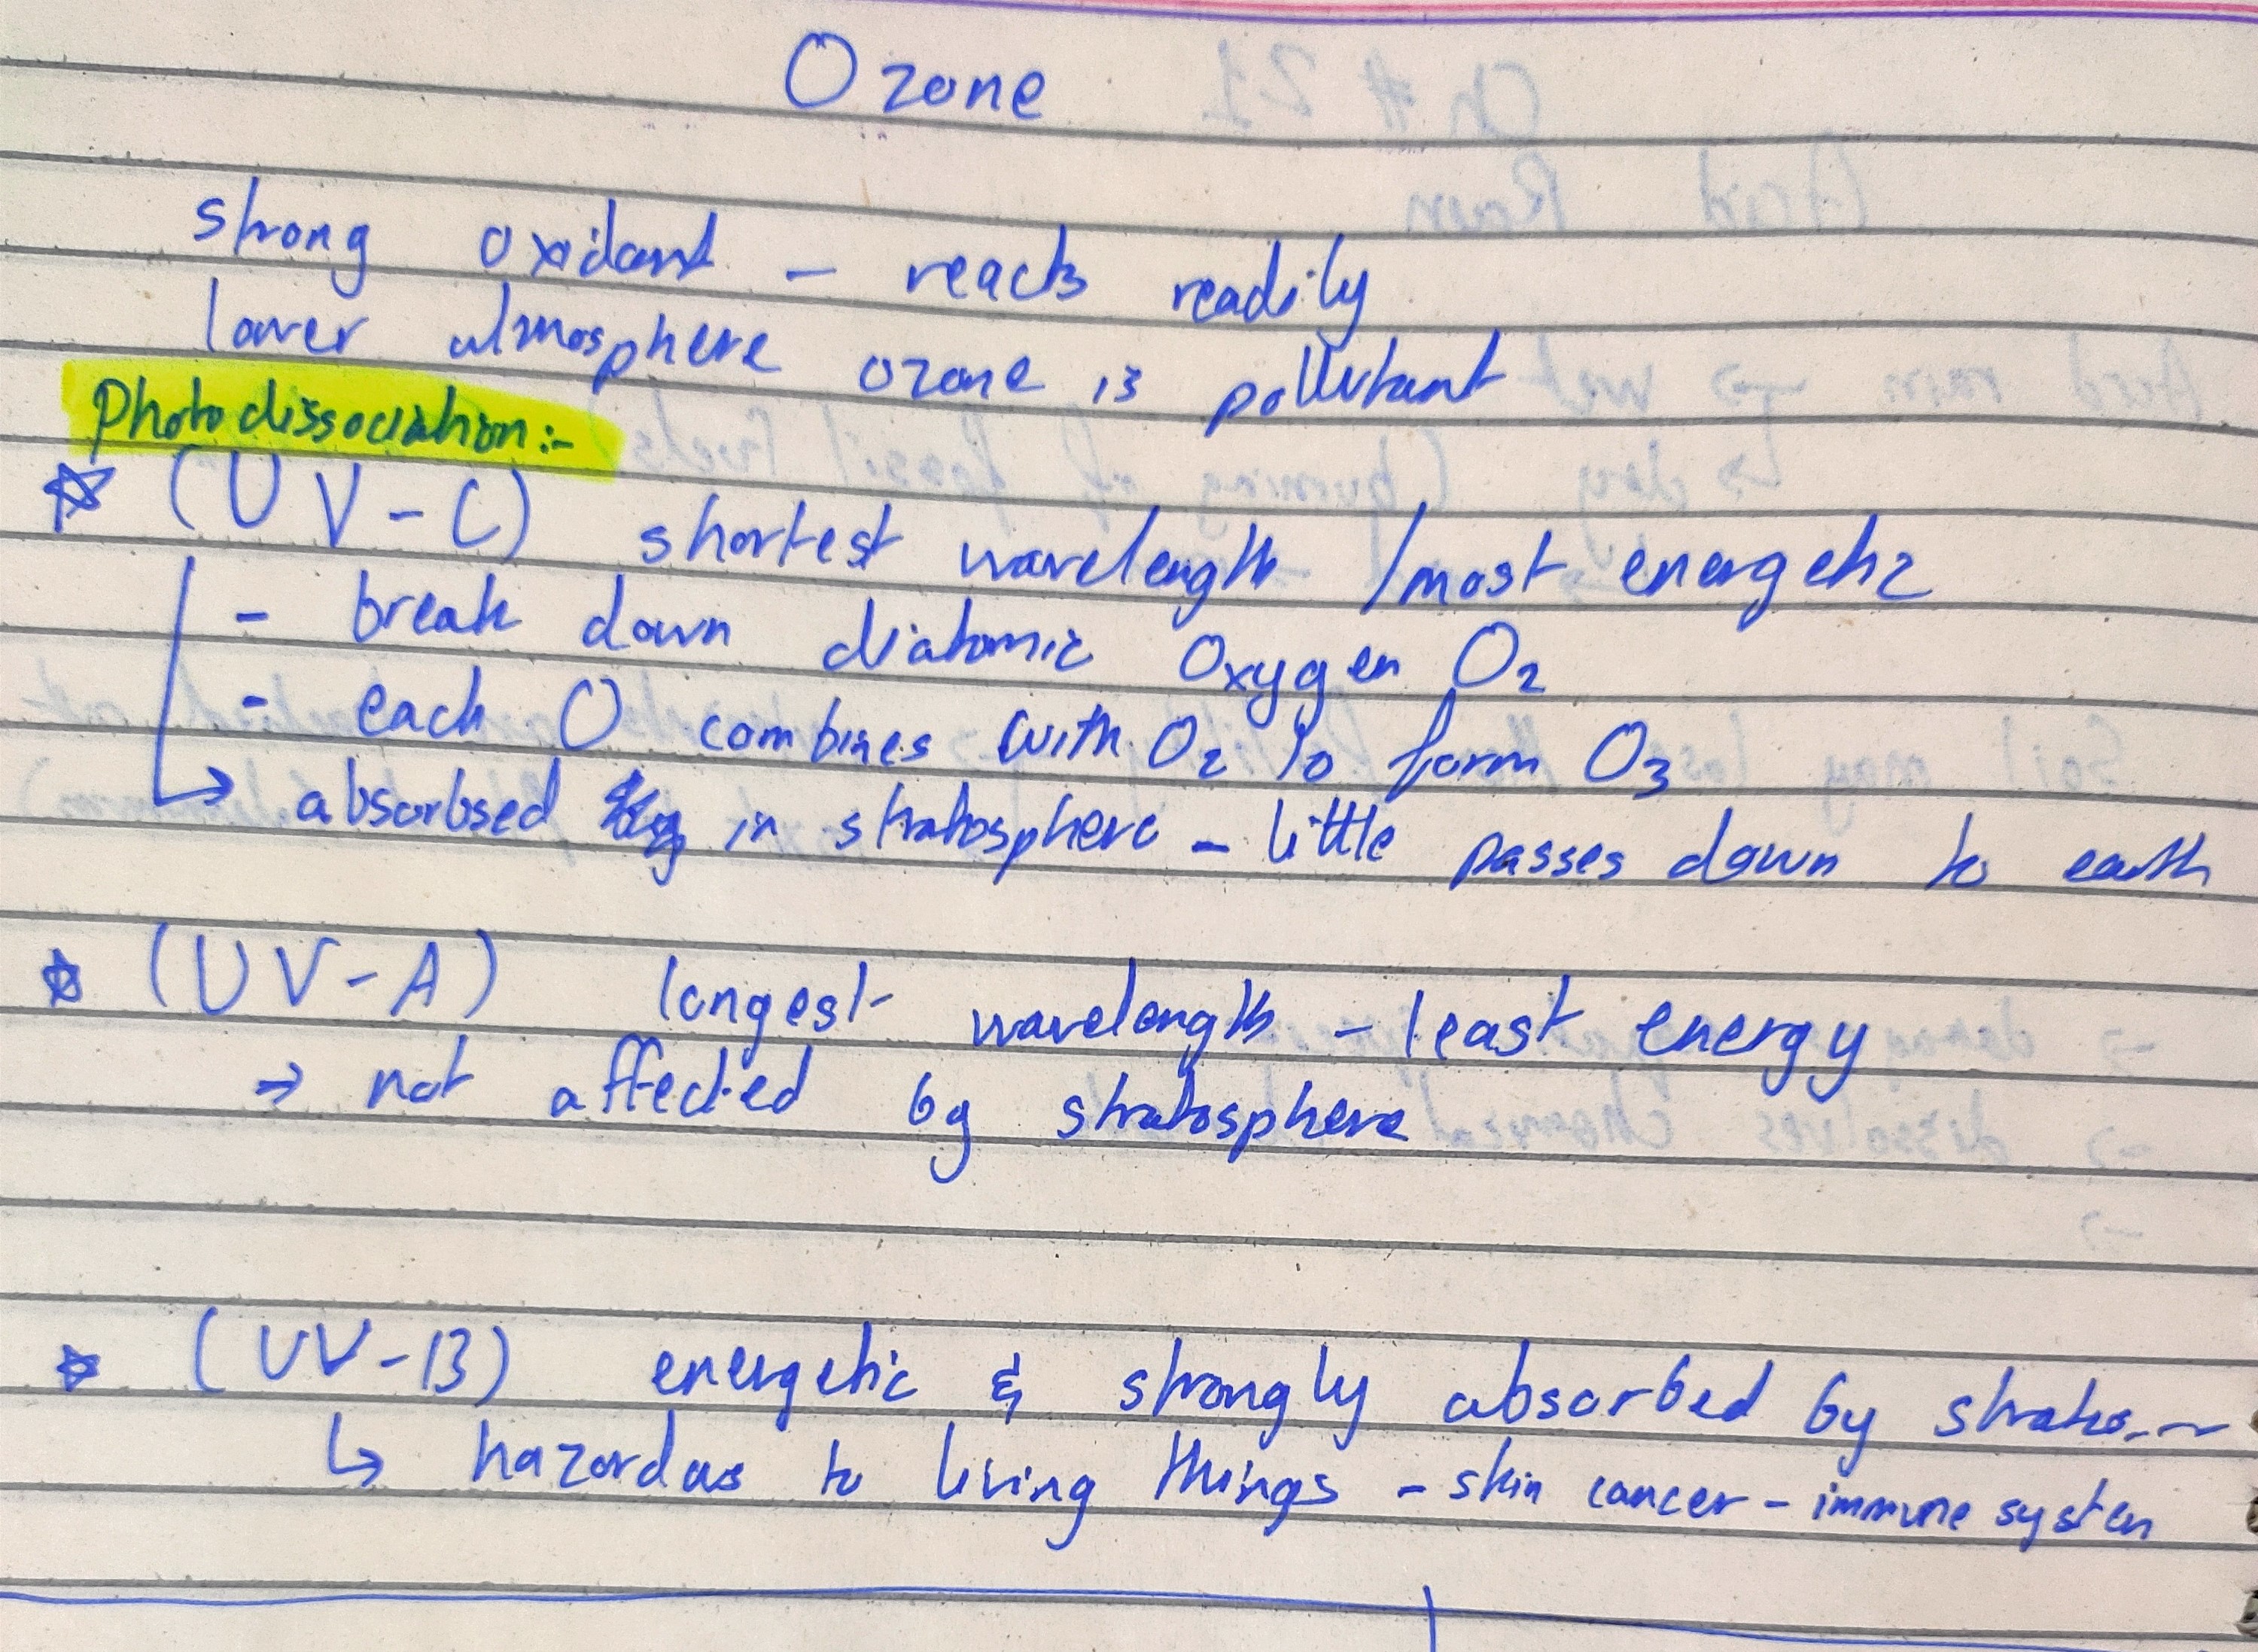 Ozone
strong oxidant - reacts readily
lower atmosphere ozone is pollutant
Photodissociation:-
☆ (UV-C) shortest wavelength / most energetic
- break down diatomic Oxygen O₂
- each O combines with O₂ to form O₃
↳ absorbsed in stratosphere - little passes down to earth
☆ (UV-A) longest wavelength - least energy
⇒ not affected by stratosphere
☆ (UV-B) energetic & strongly absorbed by strato..~
↳ hazordas to living things - skin cancer - immune system